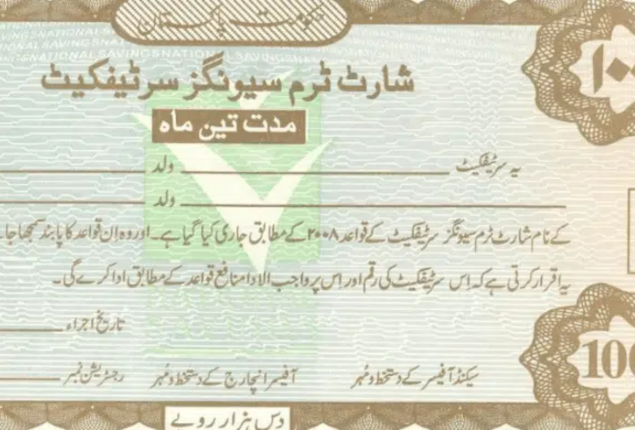 حکومت پاکستان
NATIONAL SAVINGS NATIONAL SAVINGS
شارٹ ٹرم سیونگز سرٹیفکیٹ
مدت تین ماہ
یہ سرٹیفکیٹ ولد
ولد
کے نام شارٹ ٹرم سیونگز سرٹیفکیٹ کے قواعد ۲۰۰۸ کے مطابق جاری کیا گیا ہے۔ اور وہ ان قواعد کا پابند سمجھا جا
یہ اقرار کرتی ہے کہ اس سرٹیفکیٹ کی رقم اور اس پر واجب الادا منافع قواعد کے مطابق ادا کرے گی۔
تاریخ اجراء
سیکنڈ آفیسر کے دستخط و مُہر آفیسر انچارج کے دستخط و مُہر رجسٹریشن نمبر
100
دس ہزار روپے